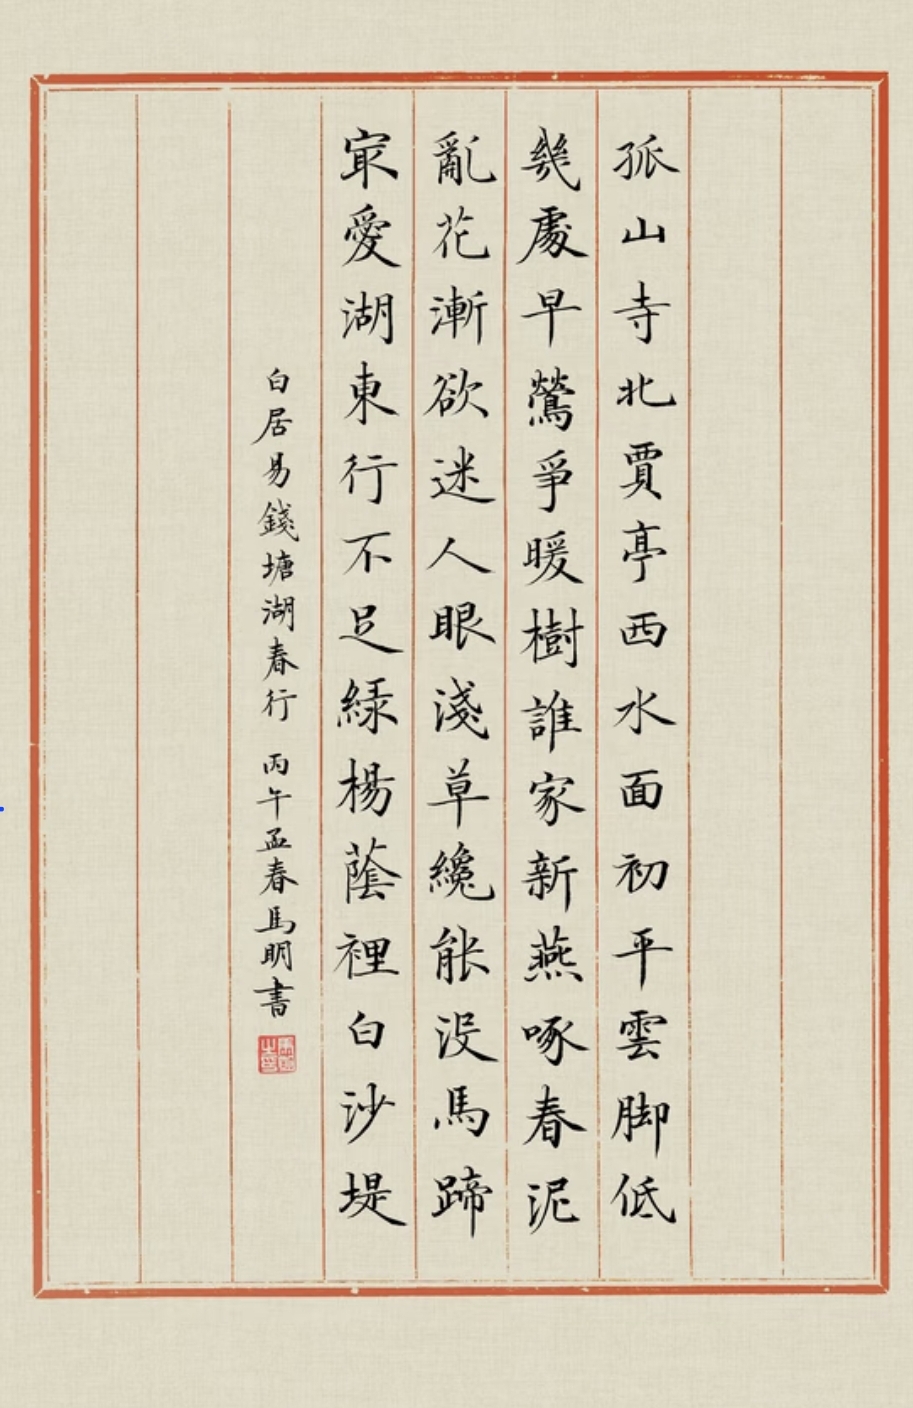 孤山寺北賈亭西水面初平雲脚低
幾處早鶯爭暖樹誰家新燕啄春泥
亂花漸欲迷人眼淺草纔能没馬蹄
冣愛湖東行不足綠楊蔭裡白沙堤
白居易錢塘湖春行 丙午孟春馬明書